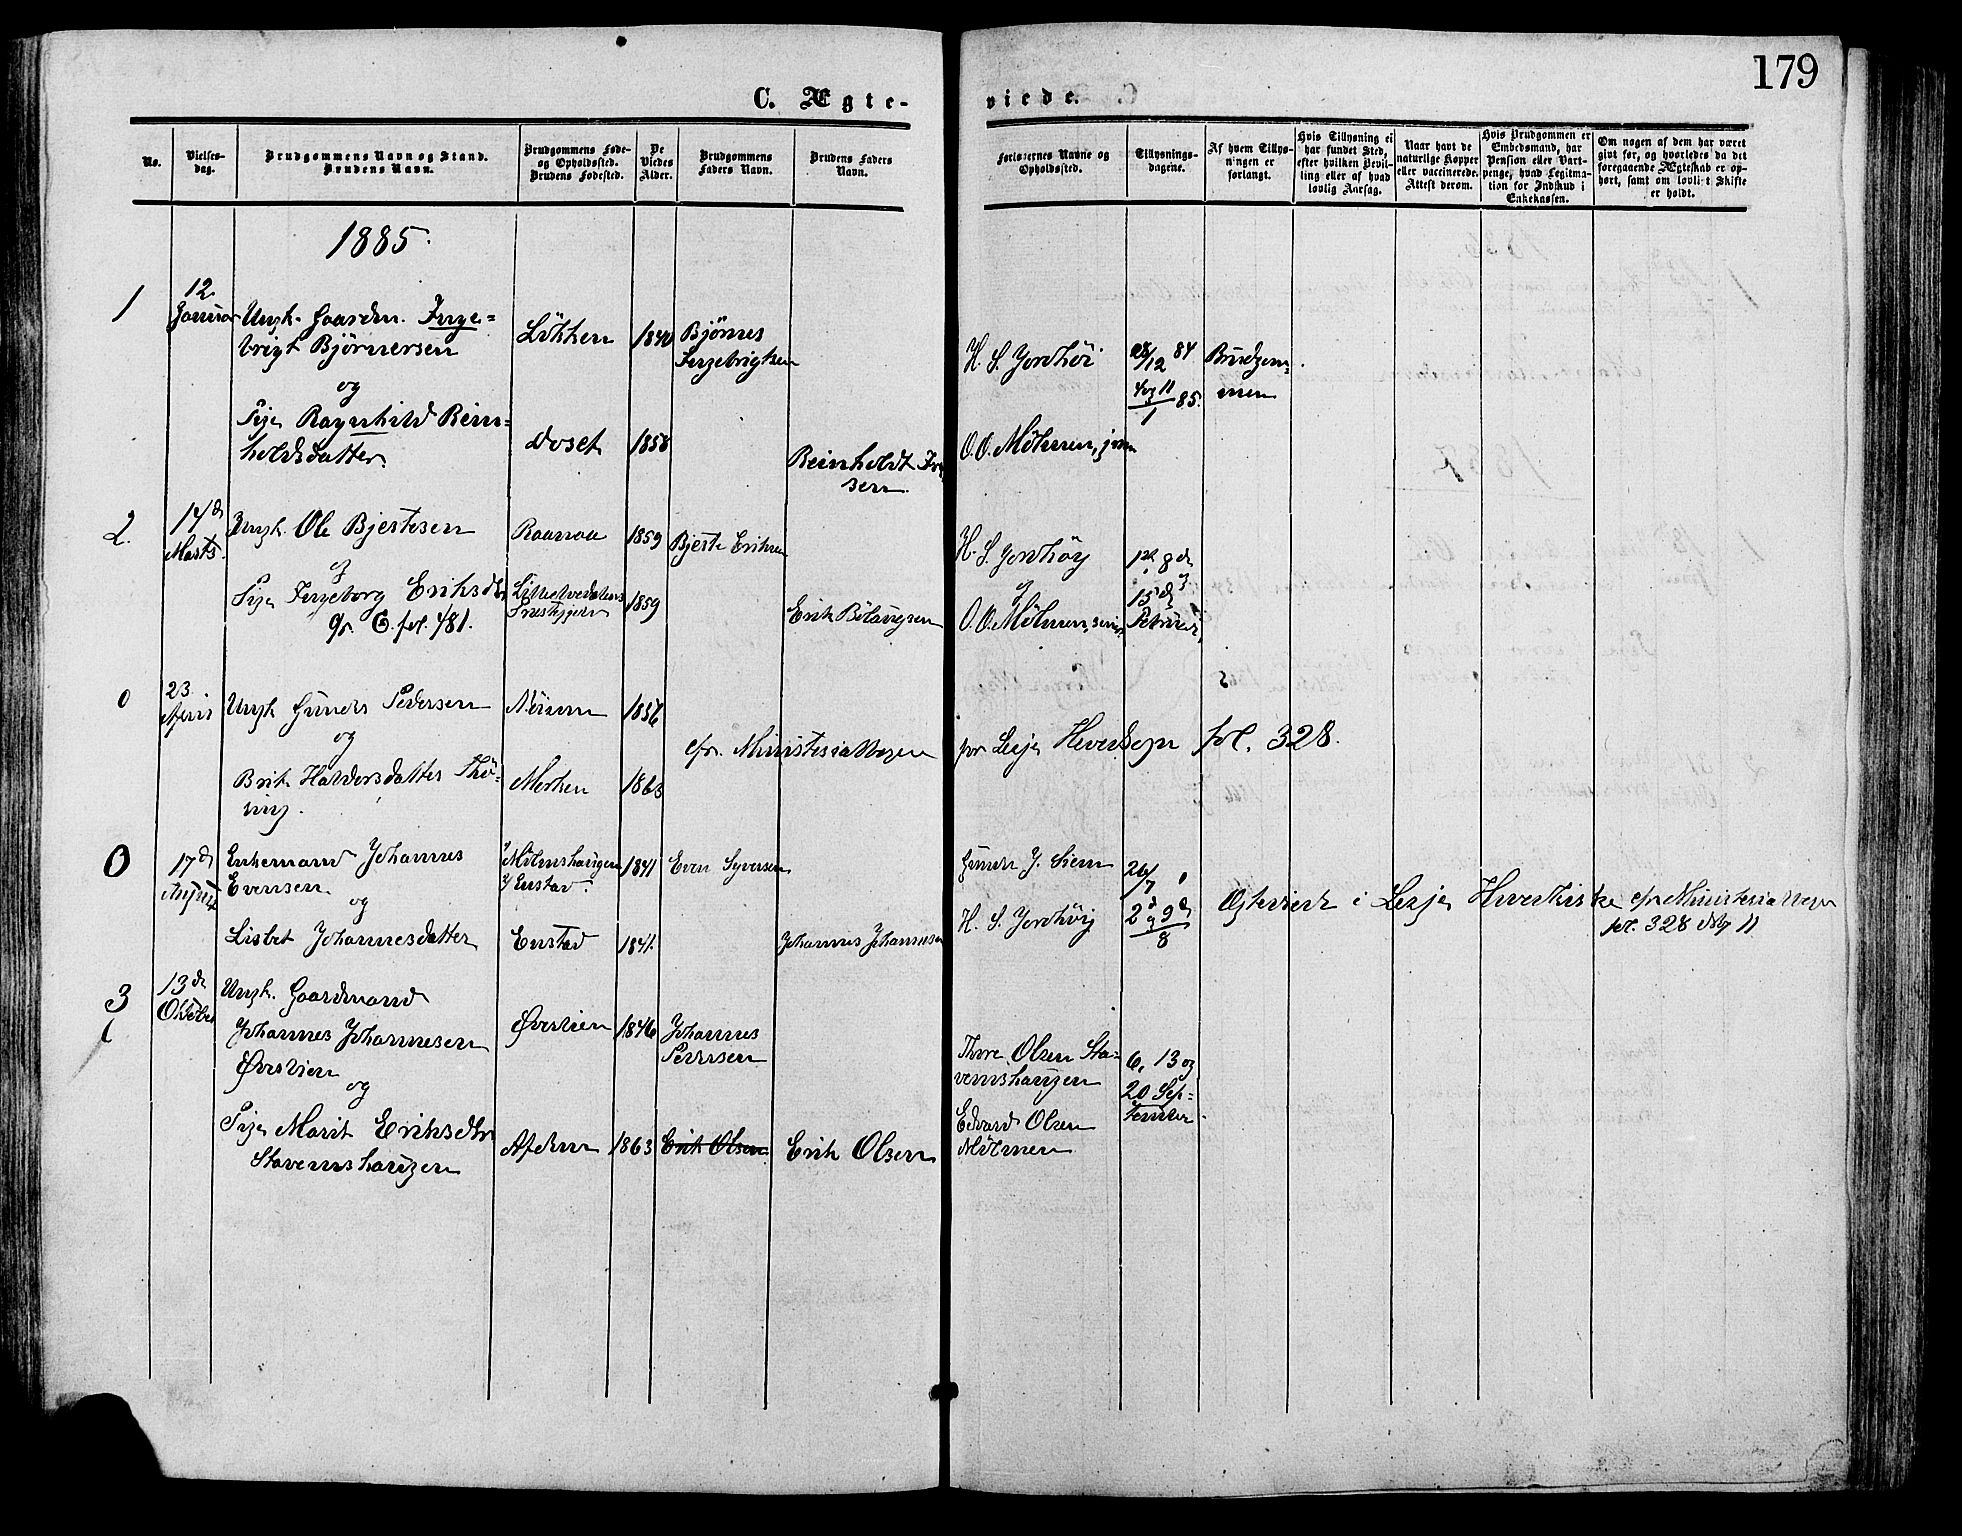 179
C. Ægte-
viede.
No.
Vielses-
dag.
Brudgommens Navn og Stand.
Brudens Navn.
Brudgommens Føde-
og Opholdssted.
Brudens Fødested.
De
Viedes
Alder.
Brudgommens
Faders Navn.
Brudens Faders
Navn.
Forlovernes Navne og
Opholdssted.
Tillysnings-
dagene.
Af hvem Tillys-
ningen er
forlangt.
Hvis Tillysning ei
har fundet Sted,
efter hvilken Bevil-
ling eller af hvad
lovlig Aarsag.
Naar havt de
naturlige Kopper
eller vaccinerede.
Attest derom.
Hvis Brudgommen er
Embedsmand, har
Pension eller Vart-
penge, hvad Legitima-
tion for Indskud i
Enkekassen.
Om nogen af dem har været
givt før, og hvorledes da det
foregaaende Ægteskab er op-
hørt, samt om lovligt Skifte
er holdt.
1885.
1
12
Januar
Ungk. Gaardm. Inge-
brigt Bjørnersen
og
Pige Ragnhild Rein-
holdsdatter
Løkken
Doset
1840
1858
Bjørnes
Ingebrigtsen
Reinholdt
sen
H. S. Jordhøi
O. O. Mølmen, jun
28/12 84
4 og 11
1 85.
Brudgom-
men
2.
14d
Marts.
Ungk. Ole Bjestesen
og
Pige Ingeborg Eriksdtr
cfr. C. fol. 481.
Raanaa
Lilleelvedalens
Præstegjeld
1859
1859
Bjeste Eriksen
Erik
H. S. Jordhøy
og
O. O. Mølmen, senior
1st 8de
og
15de
Februar
0
23
April
Ungk Gunder Pedersen
og
Brit Halvorsdatter Thø-
ring.
Nørem
Merken
1856
1863
cfr. Ministerialbogen
for Lesje Hovedsogn fol. 328.
0
17d
August
Enkemand Johannes
Evensen
og
Lisbet Johannesdatter
Mølmshaugen
Enstad.
Enstad
1841
1841.
Even Syversen
Johannes Johannesen
Gunder J. Siem
H. S. Jordhøy
26/7
2d og 9d
8
Ægteviede i Lesje Hovedkirke cfr Ministerialbogen
fol. 328 No 11
3
13de
Oktober
Ungk. Gaardmand
Johannes Johannesen
Øverlien
og
Pige Marit Eriksdtr
Stavemshaugen
Øverlien
1846
1863
Johannes
Pedersen
Erik Olsen
Erik Olsen
Thore Olsen Sta-
vemshaugen
Edvard Olsen
Mølmen
6, 13 og
20 Sep-
tember.